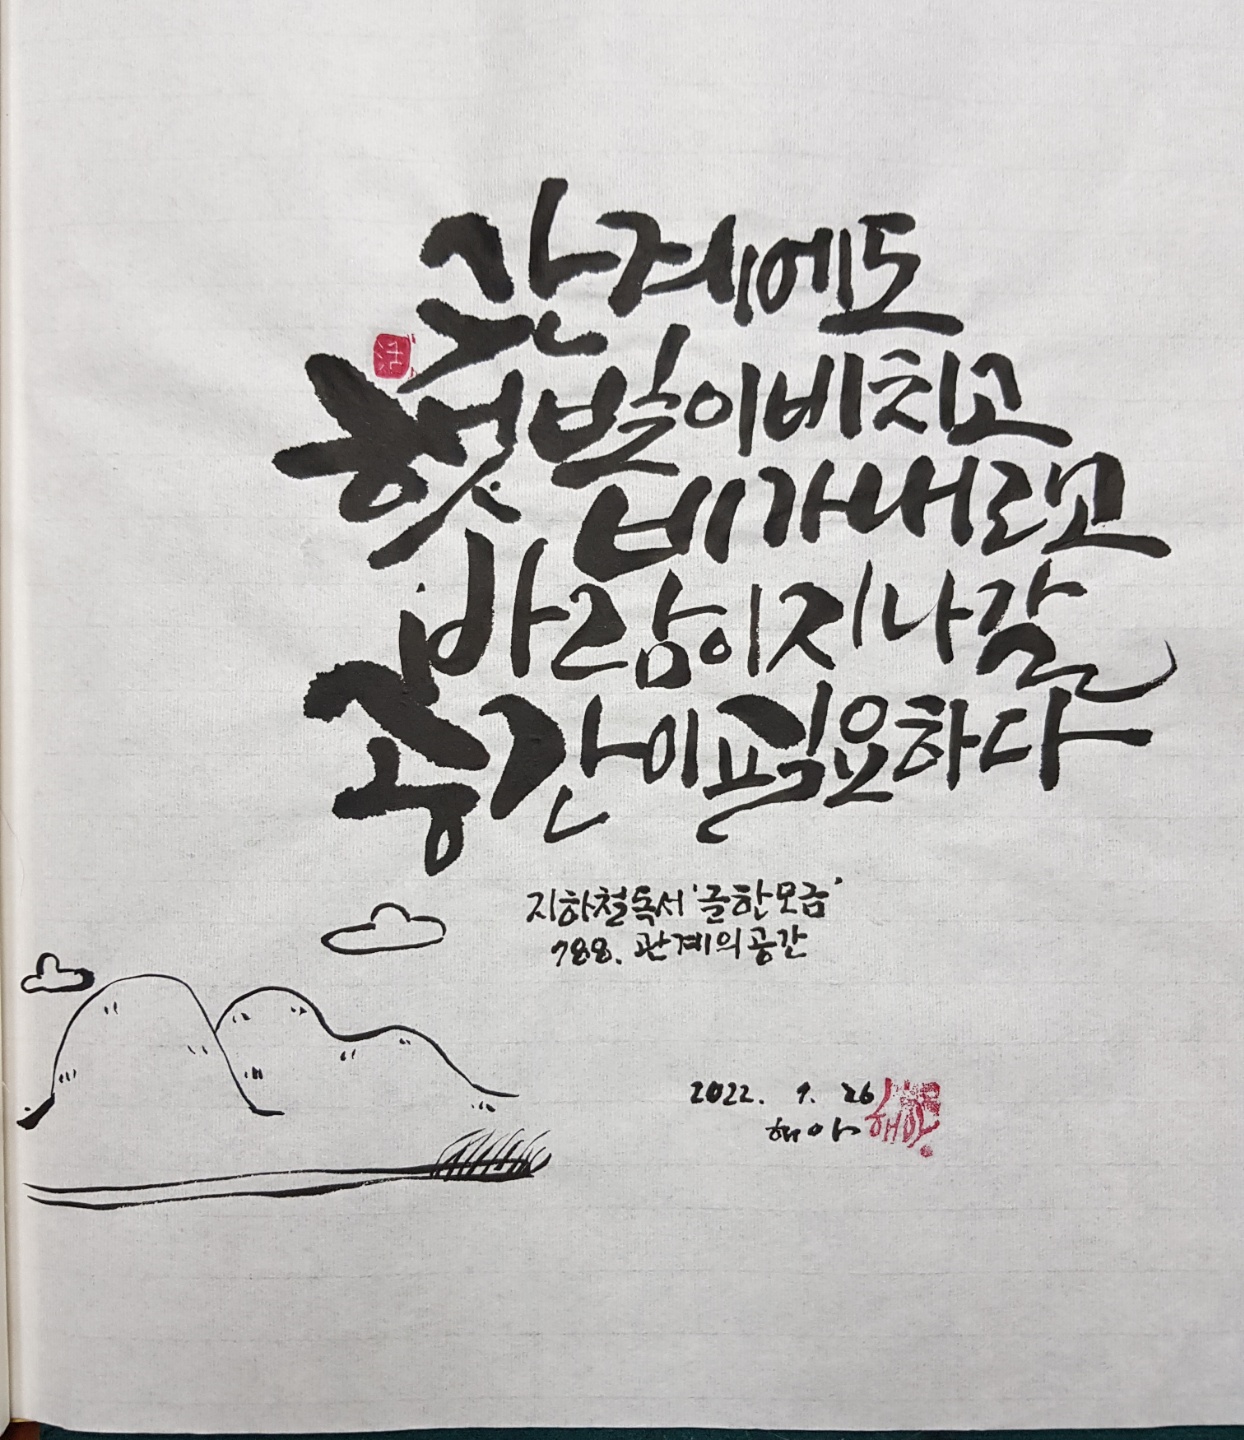 관계에도
햇빛이 비치고
비가 내리고
바람이 지나갈
공간이 필요하다
지하철독서 '글한모금'
788. 관계의 공간
2022. 9. 26
해야